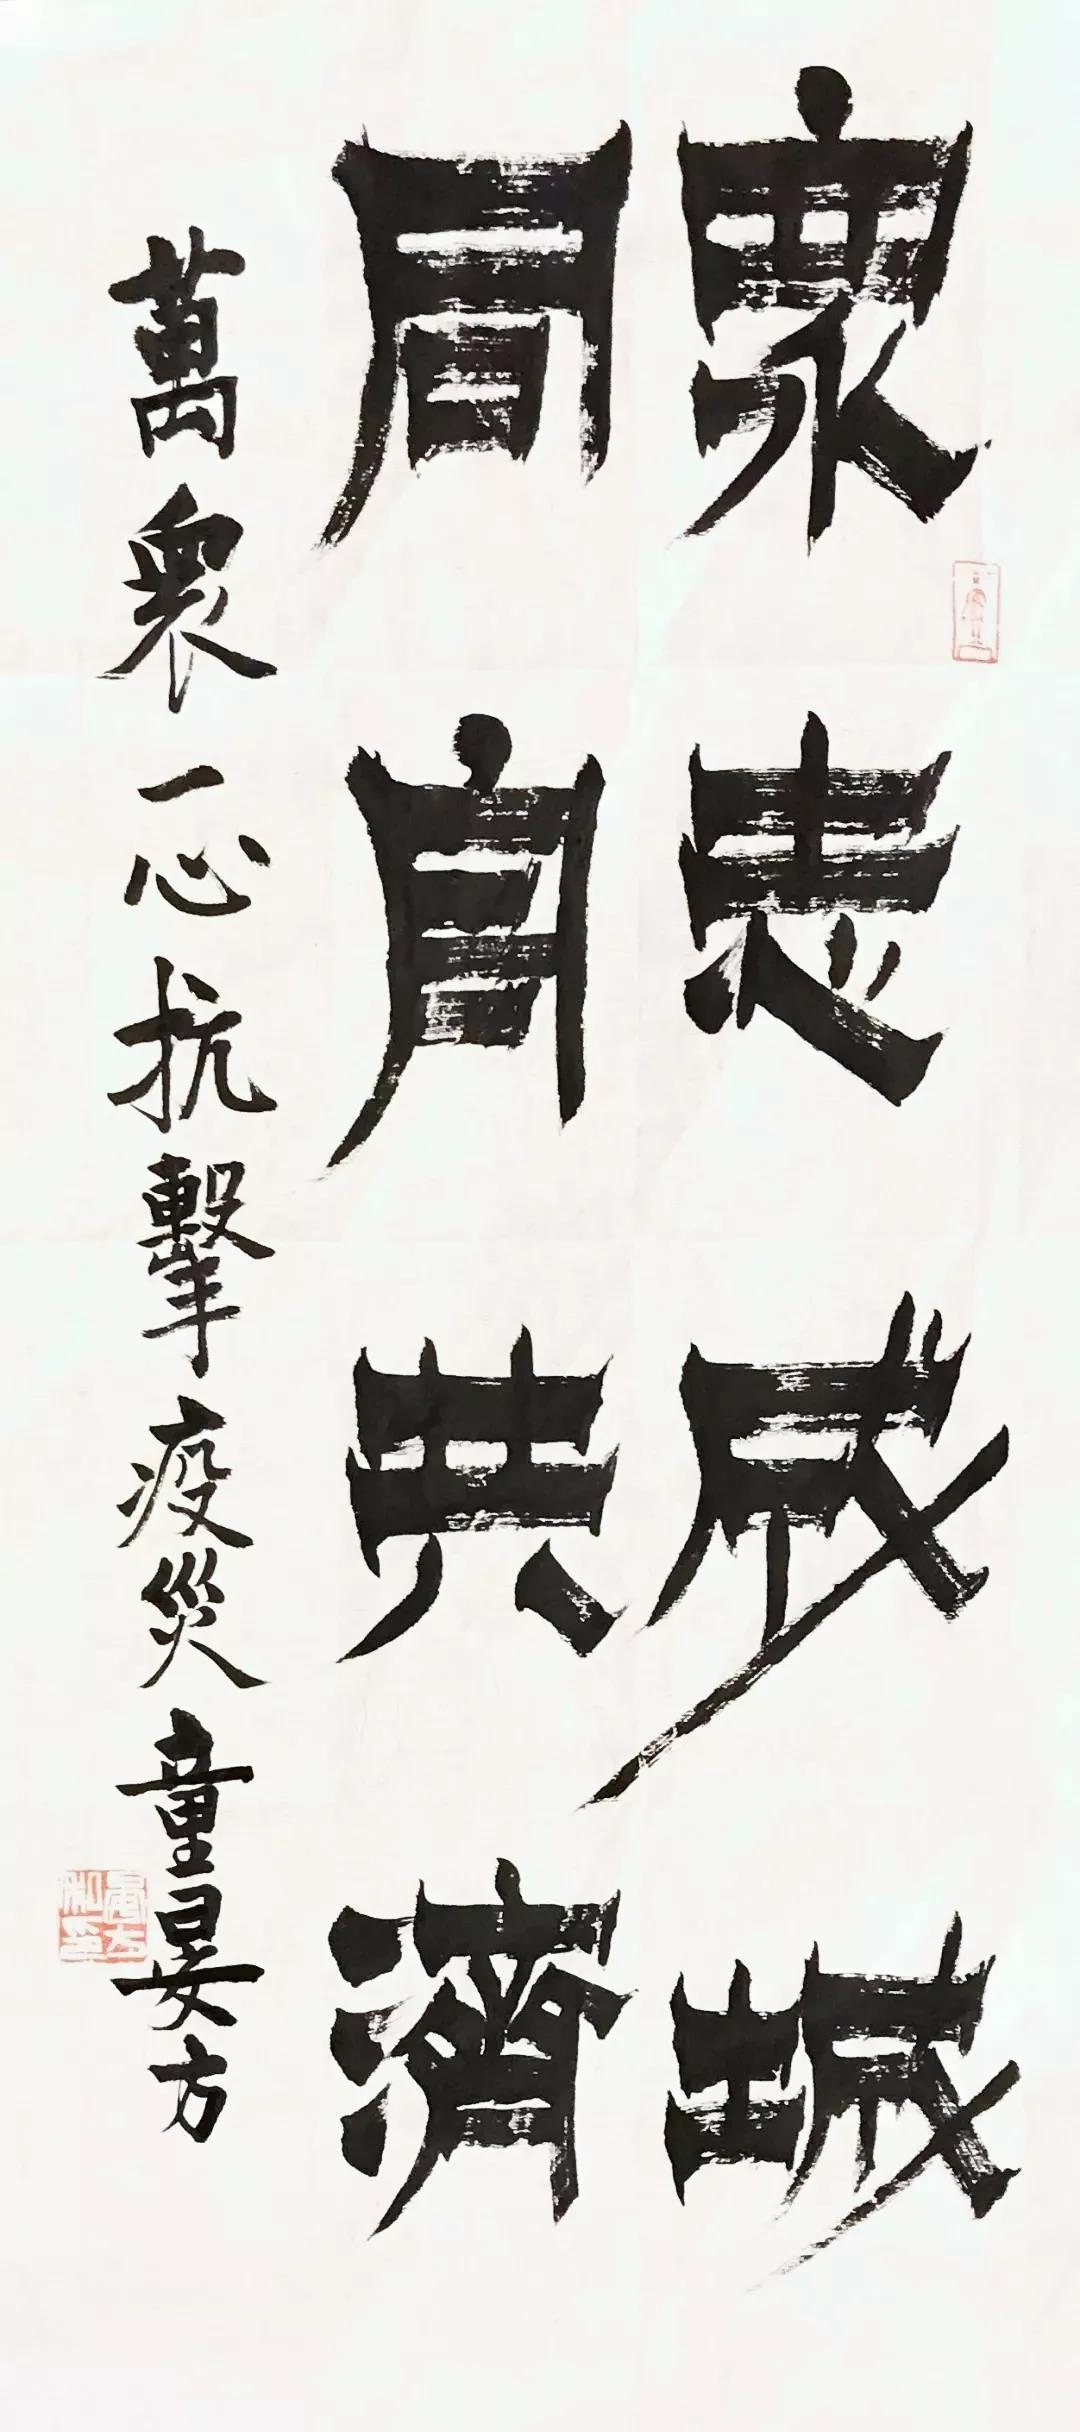 衆志成城
同舟共濟
萬衆一心抗擊疫災童晏方